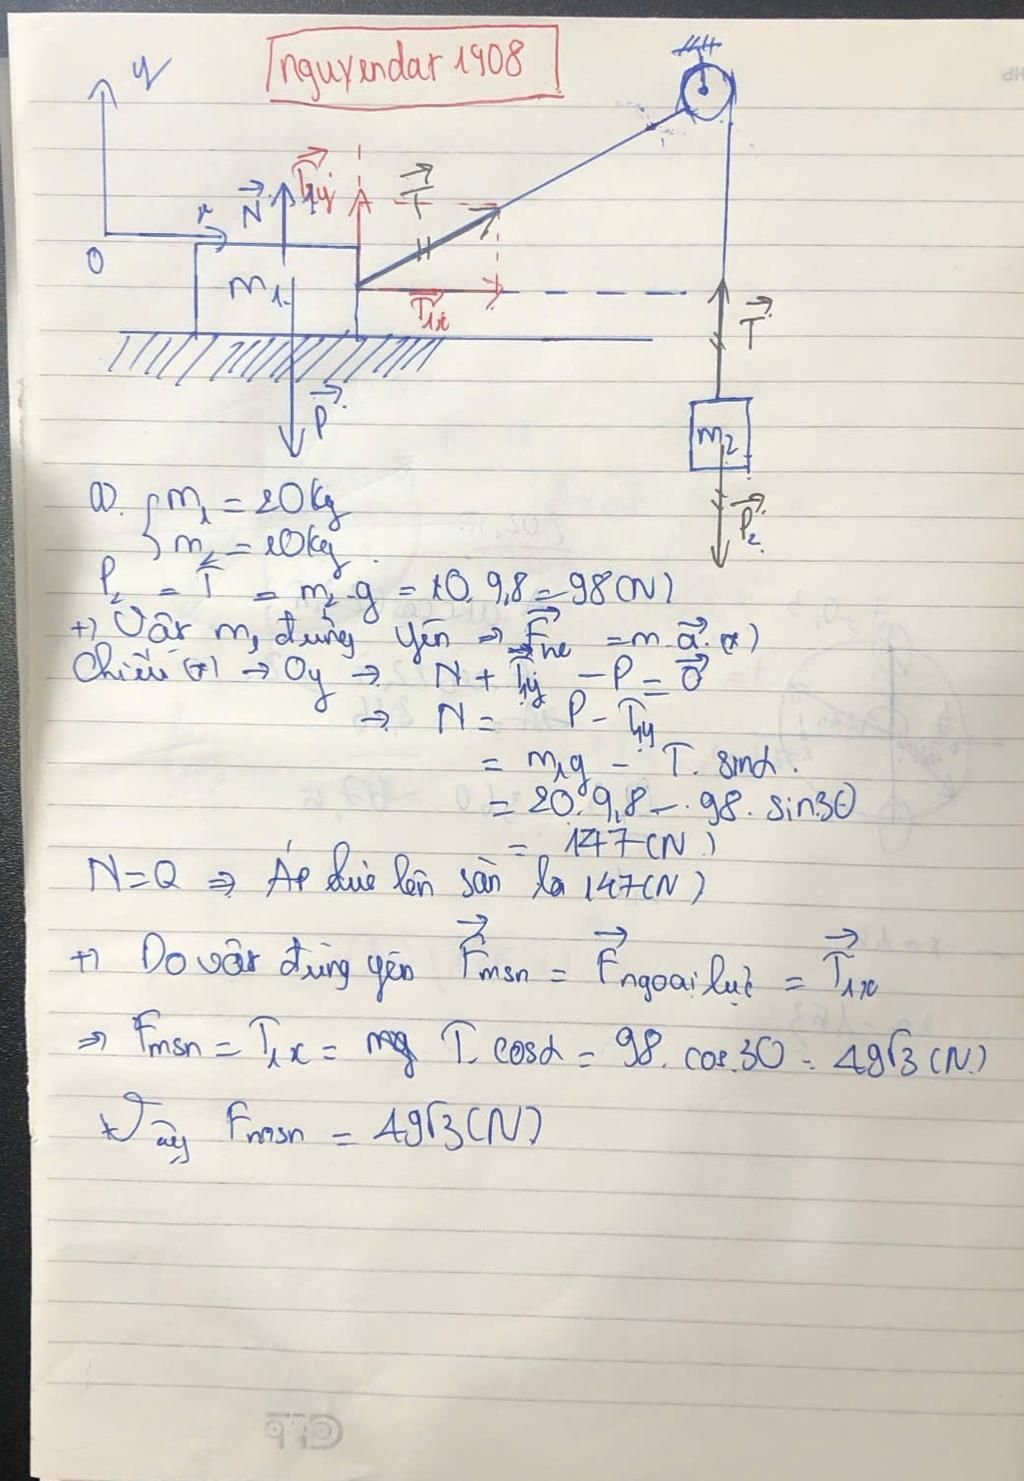 nguyendar 1908
y
N T1y T
x
O
m1
T1x
T
P
m2
P2
a). { m1 = 20kg
m2 = 10kg
P2 = T = m2.g = 10.9,8 = 98(N)
+) Vật m1 đứng yên ⇒ Fhe = m.a (*)
Chiếu (*) → Oy → N + T1y - P = 0
→ N = P - T1y
= m1g - T. sinα.
= 20.9,8 - 98. sin30
= 147(N)
N=Q ⇒ Áp lực lên sàn là 147(N)
+) Do vật đứng yên Fmsn = Fngoai lực = T1x
⇒ Fmsn = T1x = T. cosα = 98. cos.30 = 49√3 (N)
Vậy Fmsn = 49√3 (N)